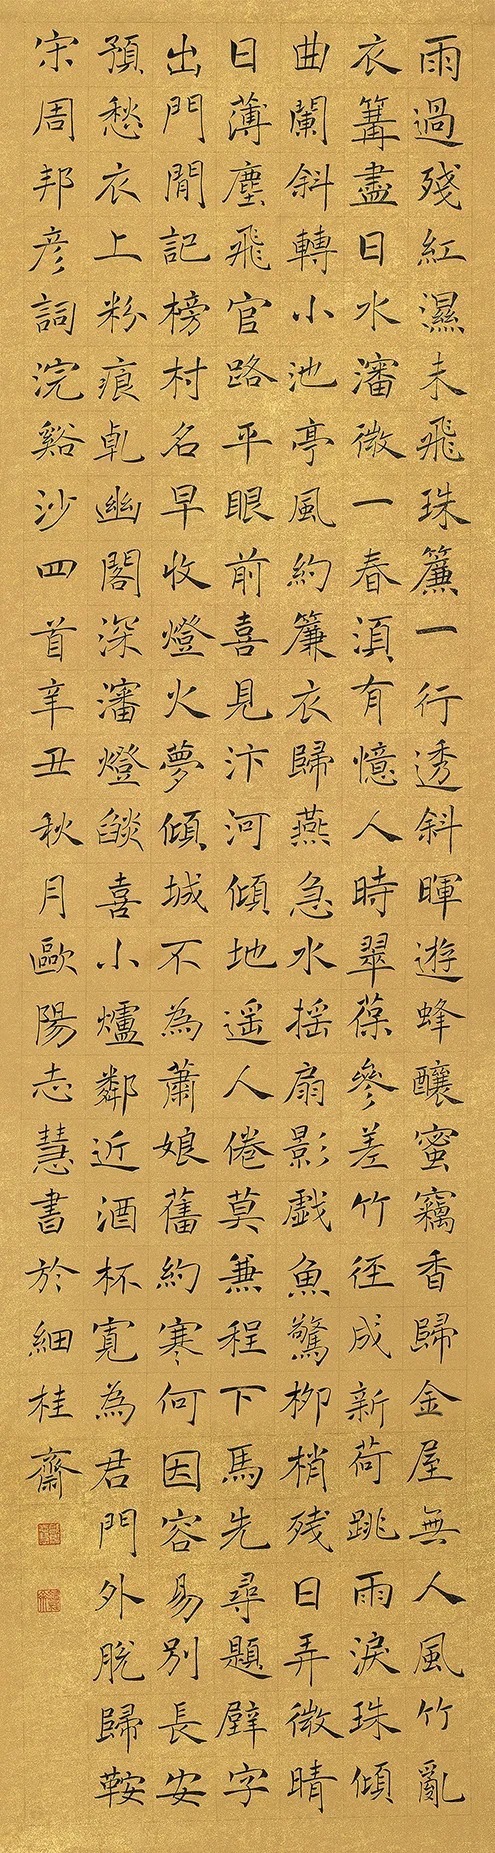 雨過殘紅濕未飛珠簾一行透斜暉遊蜂釀蜜竊香歸金屋無人風竹亂
衣篝盡日水瀋微一春須有憶人時翠葆參差竹徑成新荷跳雨淚珠傾
曲闌斜轉小池亭風約簾衣歸燕急水搖扇影戲魚驚柳梢残日弄微晴
日薄塵飛官路平眼前喜見汴河傾地遥人倦莫兼程下馬先尋題壁字
出門閒記榜村名早收燈火夢傾城不為蕭娘舊約寒何因容易別長安
預愁衣上粉痕乹幽閣深瀋燈燄喜小爐鄰近酒杯寛為君門外脫歸鞍
宋周邦彦詞浣谿沙四首辛丑秋月歐陽志慧書於細桂齋